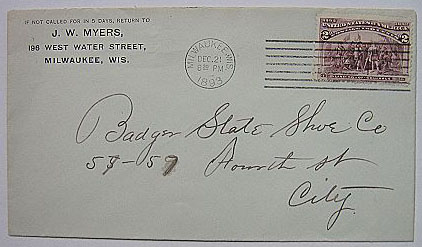 IF NOT CALLED FOR IN 5 DAYS, RETURN TO
J. W. MYERS,
196 WEST WATER STREET,
MILWAUKEE, WIS.
MILWAUKEE, WIS.
DEC. 21
PM
1893
Badger State Shoe Co
Fourth st
City